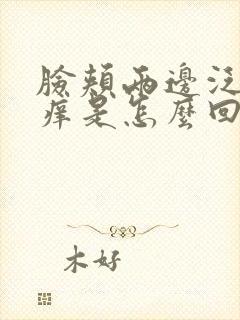 臉頰兩邊泛
癢是怎麼回
木好